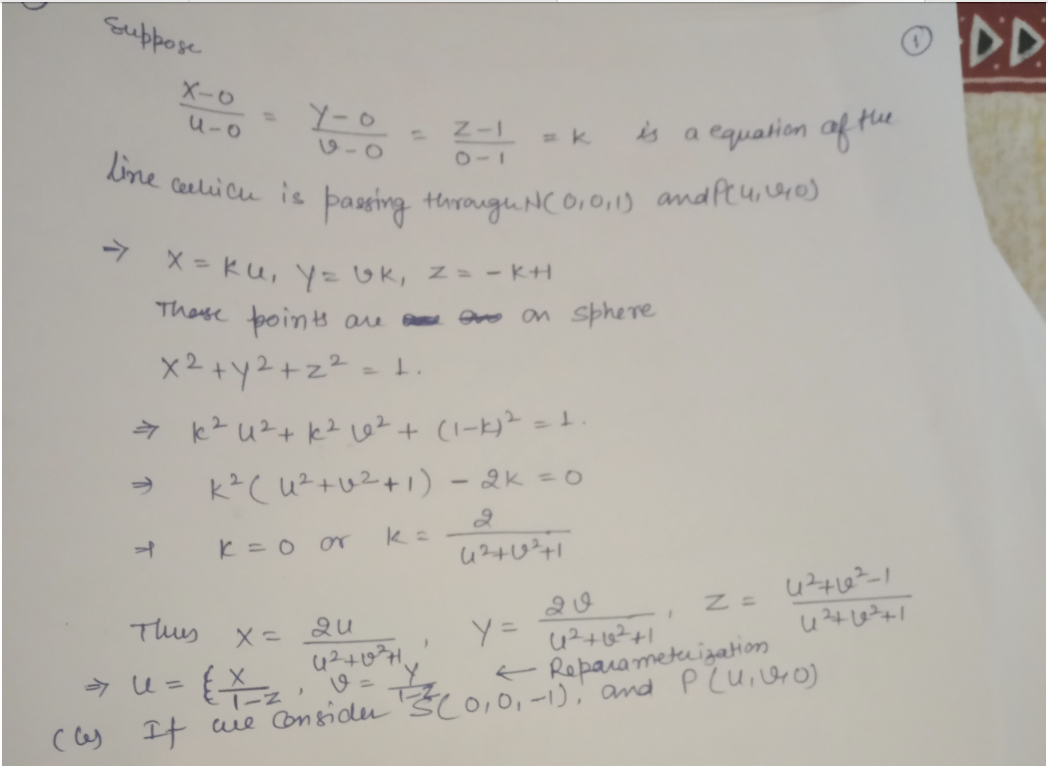 ①
Suppose
X-0/u-0 = Y-0/v-0 = Z-1/0-1 = k is a equation of the
line which is passing through N(0,0,1) and P(u,v,0)
⇒ X = ku, Y = vk, Z = -k+1
These points are on sphere
X² + Y² + Z² = 1.
⇒ k²u² + k²v² + (1-k)² = 1.
⇒ k²(u²+v²+1) - 2k = 0
⇒ k = 0 or k = 2/u²+v²+1
Thus X = 2u/u²+v²+1, Y = 2v/u²+v²+1, Z = u²+v²-1/u²+v²+1
⇒ u = X/1-Z, v = Y/1-Z ← Reparameterization
If we consider S(0,0,-1), and P(u,v,0)